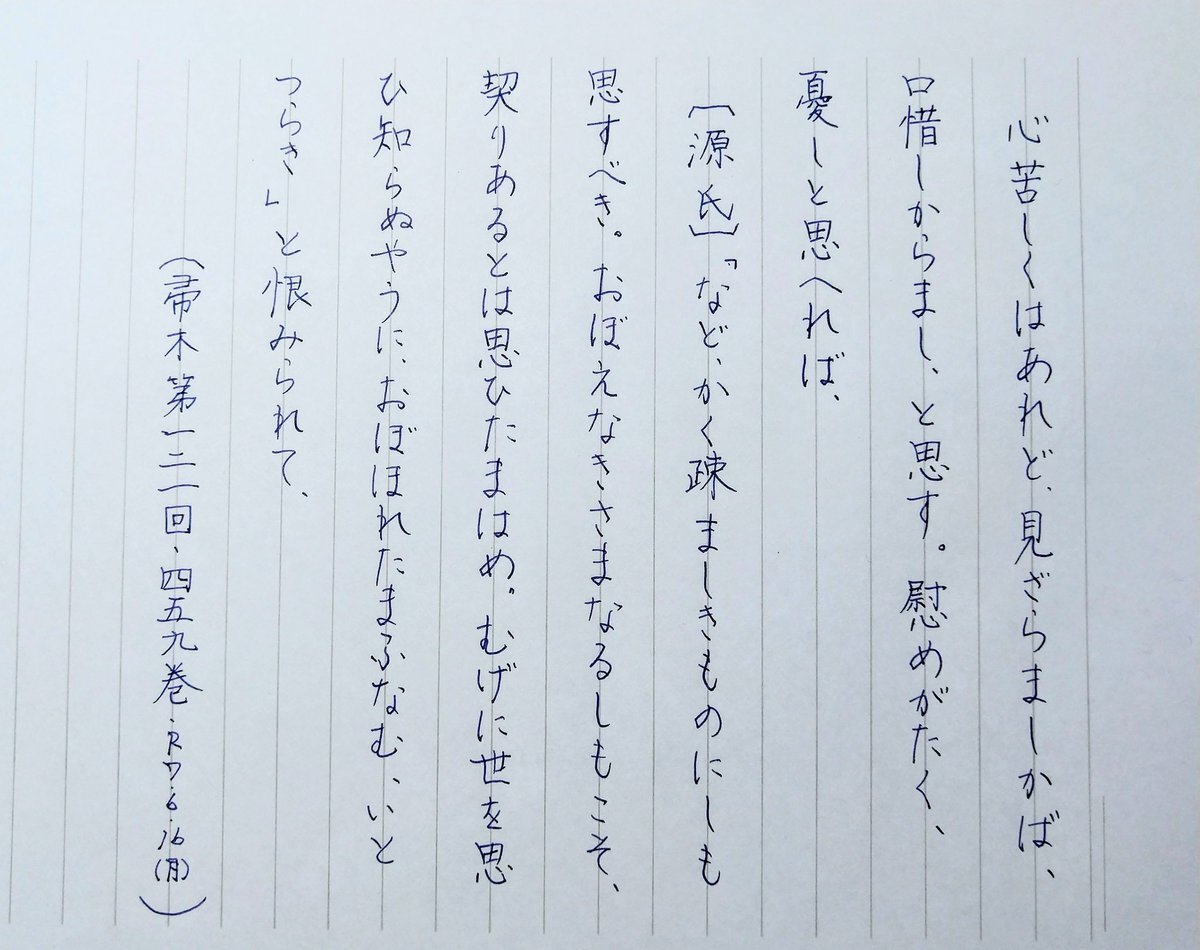 心苦しくはあれど、見ざらましかば、
口惜しからまし、と思す。慰めがたく、
憂しと思へれば、
〔源氏〕「など、かく疎ましきものにしも
思すべき。おぼえなきさまなるしもこそ、
契りあるとは思ひたまはめ。むげに世を思
ひ知らぬやうに、おぼほれたまふなむ、いと
つらき」と恨みられて、
(帚木第一二一回・四五九巻・R7.6.16(月))